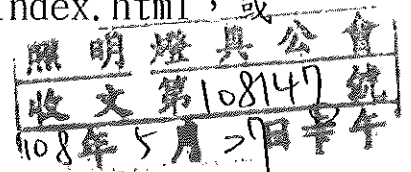 index.html，或
照明燈具公會
收文第108147號
108年5月27日 午